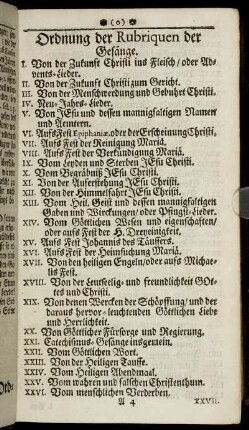 (o)
Ordnung der Rubriquen der
Gesänge.
I. Von der Zukunft Christi ins Fleisch/ oder Ad-
vents-Lieder.
II. Von der Zukunft Christi zum Gericht.
III. Von der Menschwerdung und Geburt Christi.
IV. Neu-Jahrs-Lieder.
V. Von JEsu und dessen mannigfaltigen Namen
und Aemtern.
VI. Aufs Fest Epiphaniæ, oder der Erscheinung Christi,
VII. Aufs Fest der Reinigung Mariä.
VIII. Aufs Fest der Verkündigung Mariä.
IX. Vom Leyden und Sterben JEsu Christi.
X. Vom Begräbniß JEsu Christi.
XI. Von der Auferstehung JEsu Christi.
XII. Von der Himmelfahrt JEsu Christi.
XIII. Vom Heil. Geist und dessen mannigfaltigen
Gaben und Wirckungen/ oder Pfingst-Lieder.
XIV. Vom Göttlichen Wesen und eigenschaften/
oder aufs Fest der H. Dreyeinigkeit.
XV. Aufs Fest Johannis des Täuffers.
XVI. Aufs Fest der Heimsuchung Mariä.
XVII. Von den heiligen Engeln/oder aufs Michae-
lis Fest.
XVIII. Von der Leutselig- und freundlichkeit GOt-
tes und Christi.
XIX. Von denen Wercken der Schöpffung/ und der
daraus hervor-leuchtenden Göttlichen Liebe
und Herrlichkeit.
XX. Von Göttlicher Fürsorge und Regierung.
XXI. Catechismus-Gesänge insgemein.
XXII. Vom Göttlichen Wort.
XXIII. Von der Heiligen Tauffe.
XXIV. Vom Heiligen Abendmaal.
XXV. Vom wahren und falschen Christenthum.
XXVI. Vom menschlichen Verderben.
A 4
XXVII.